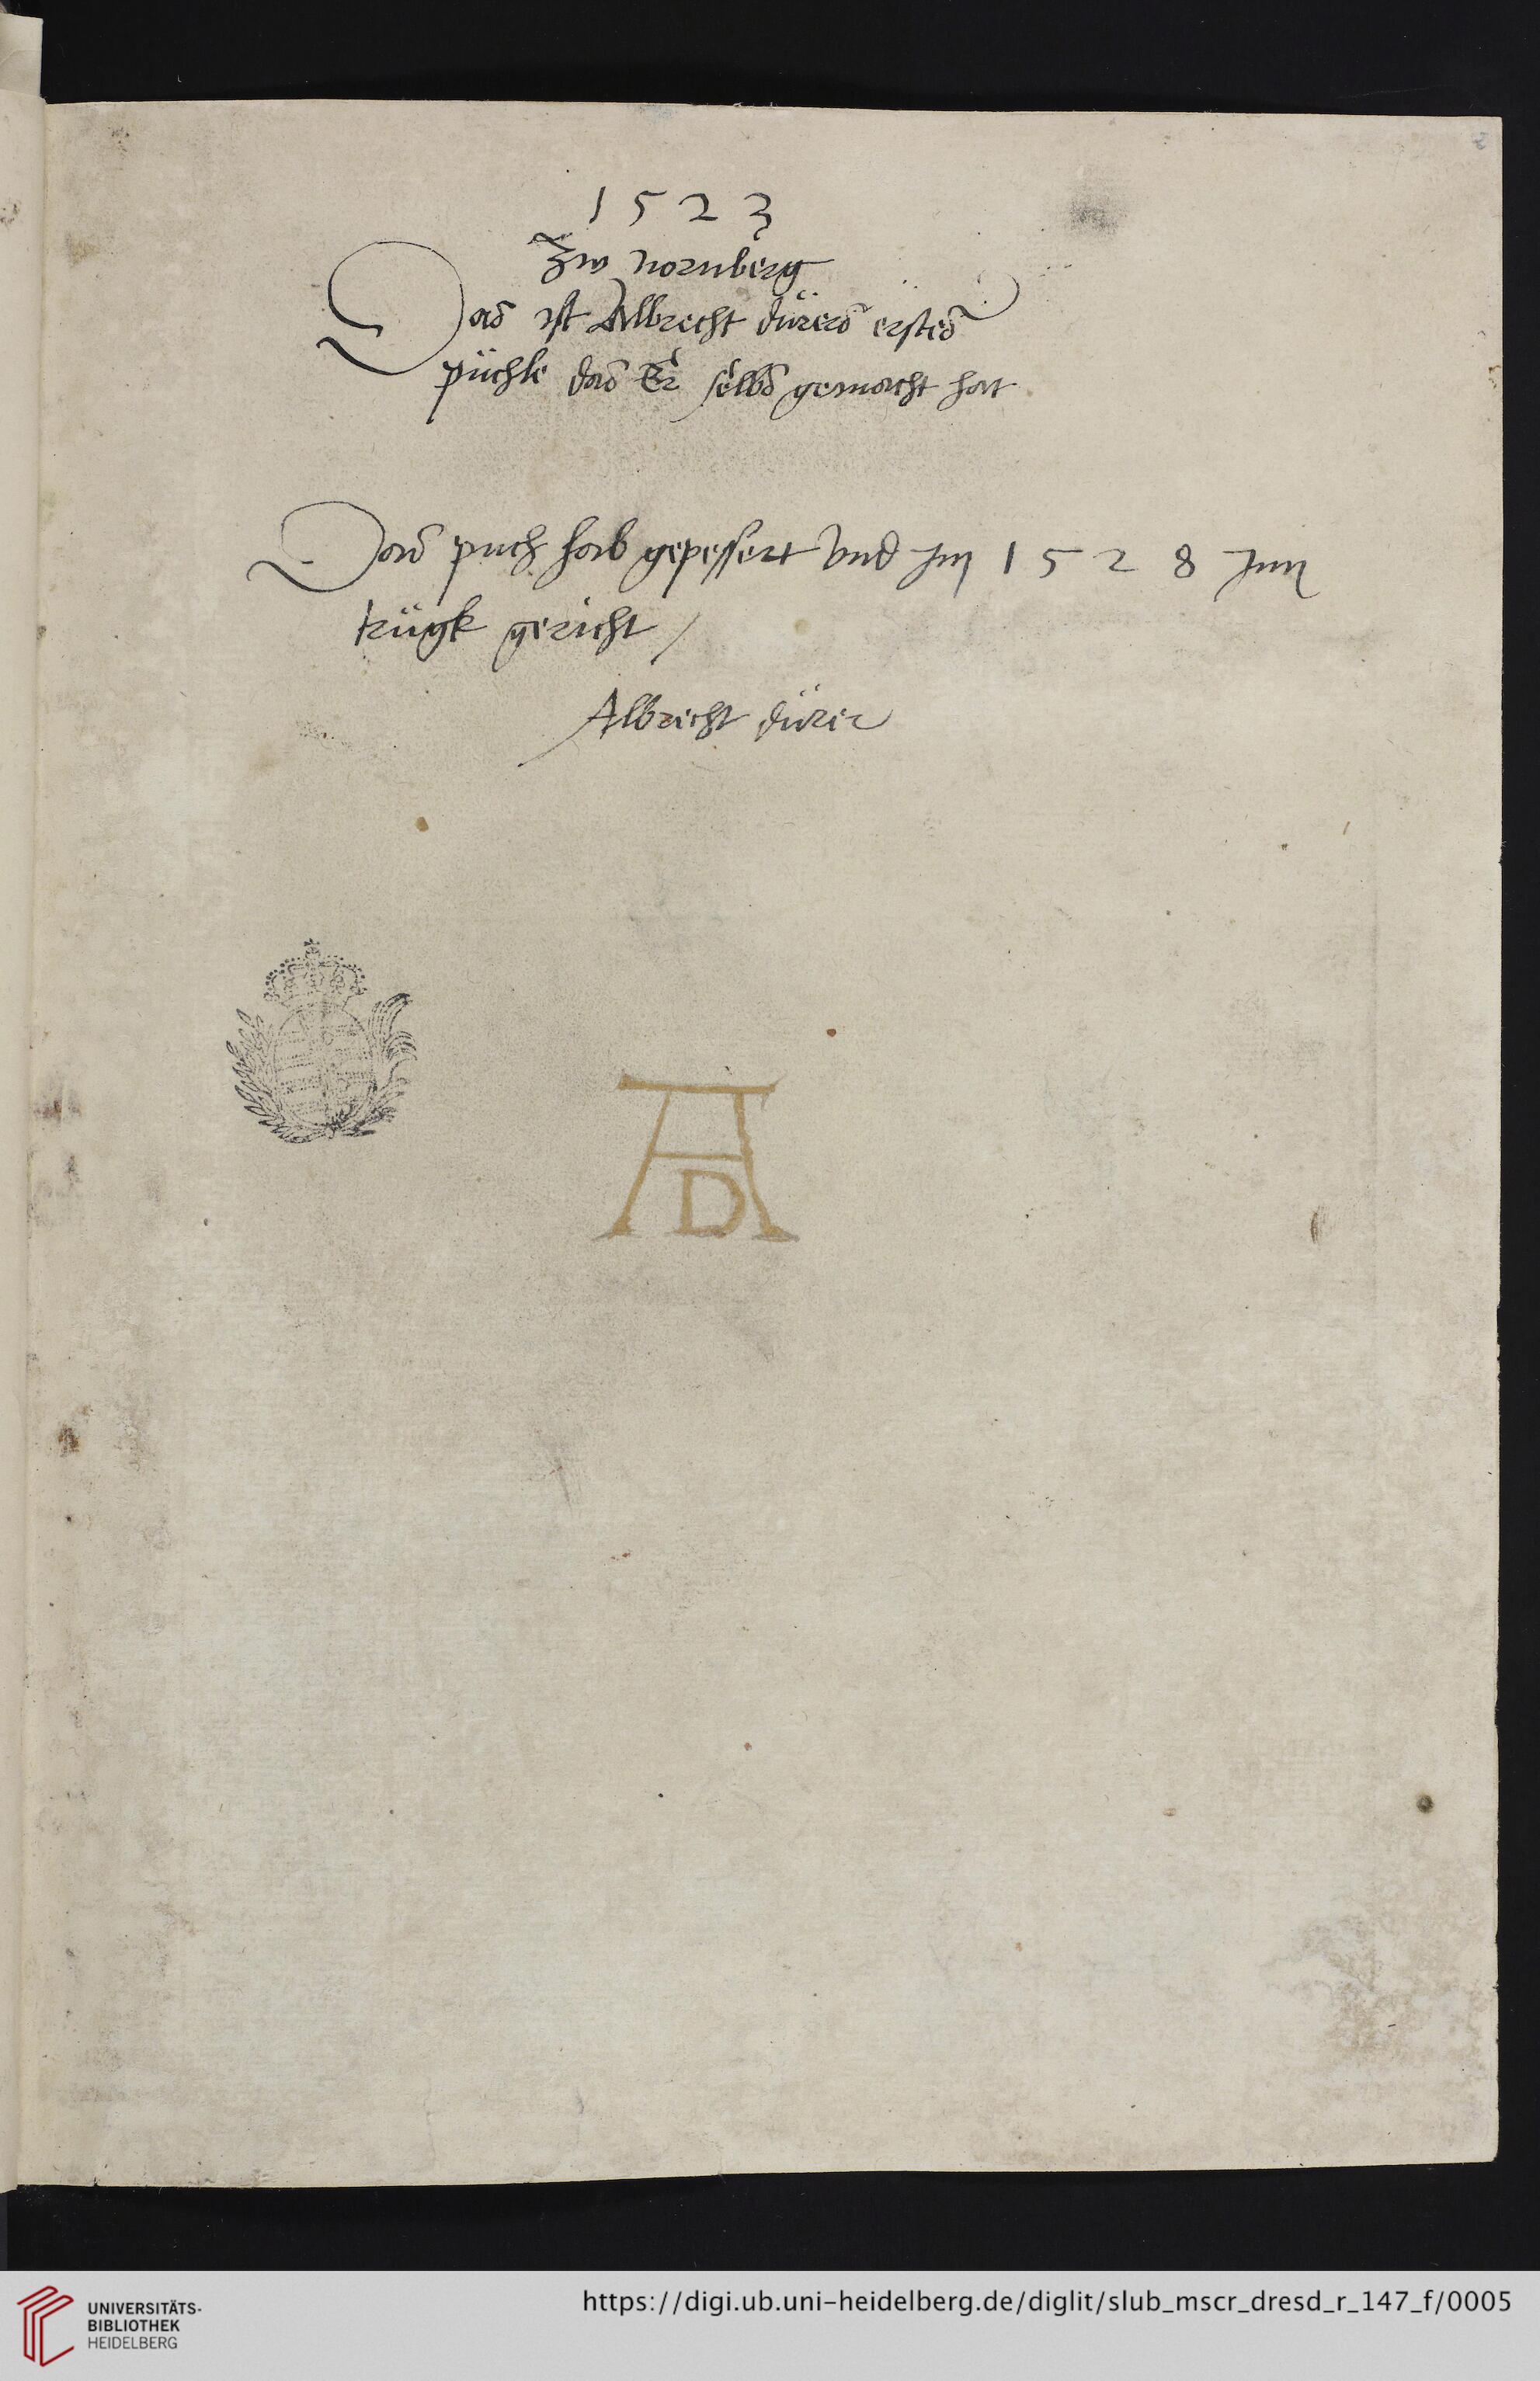 2
1523
Zw nornberg
Das ist Albrecht dürers erstes
püchle das Er selbs gemacht hat
Das puch hab gepessert vnd jm 1528 jnn
trügk gericht /
Albrecht dürer
AD
UNIVERSITÄTS-
BIBLIOTHEK
HEIDELBERG
https://digi.ub.uni-heidelberg.de/diglit/slub_mscr_dresd_r_147_f/0005